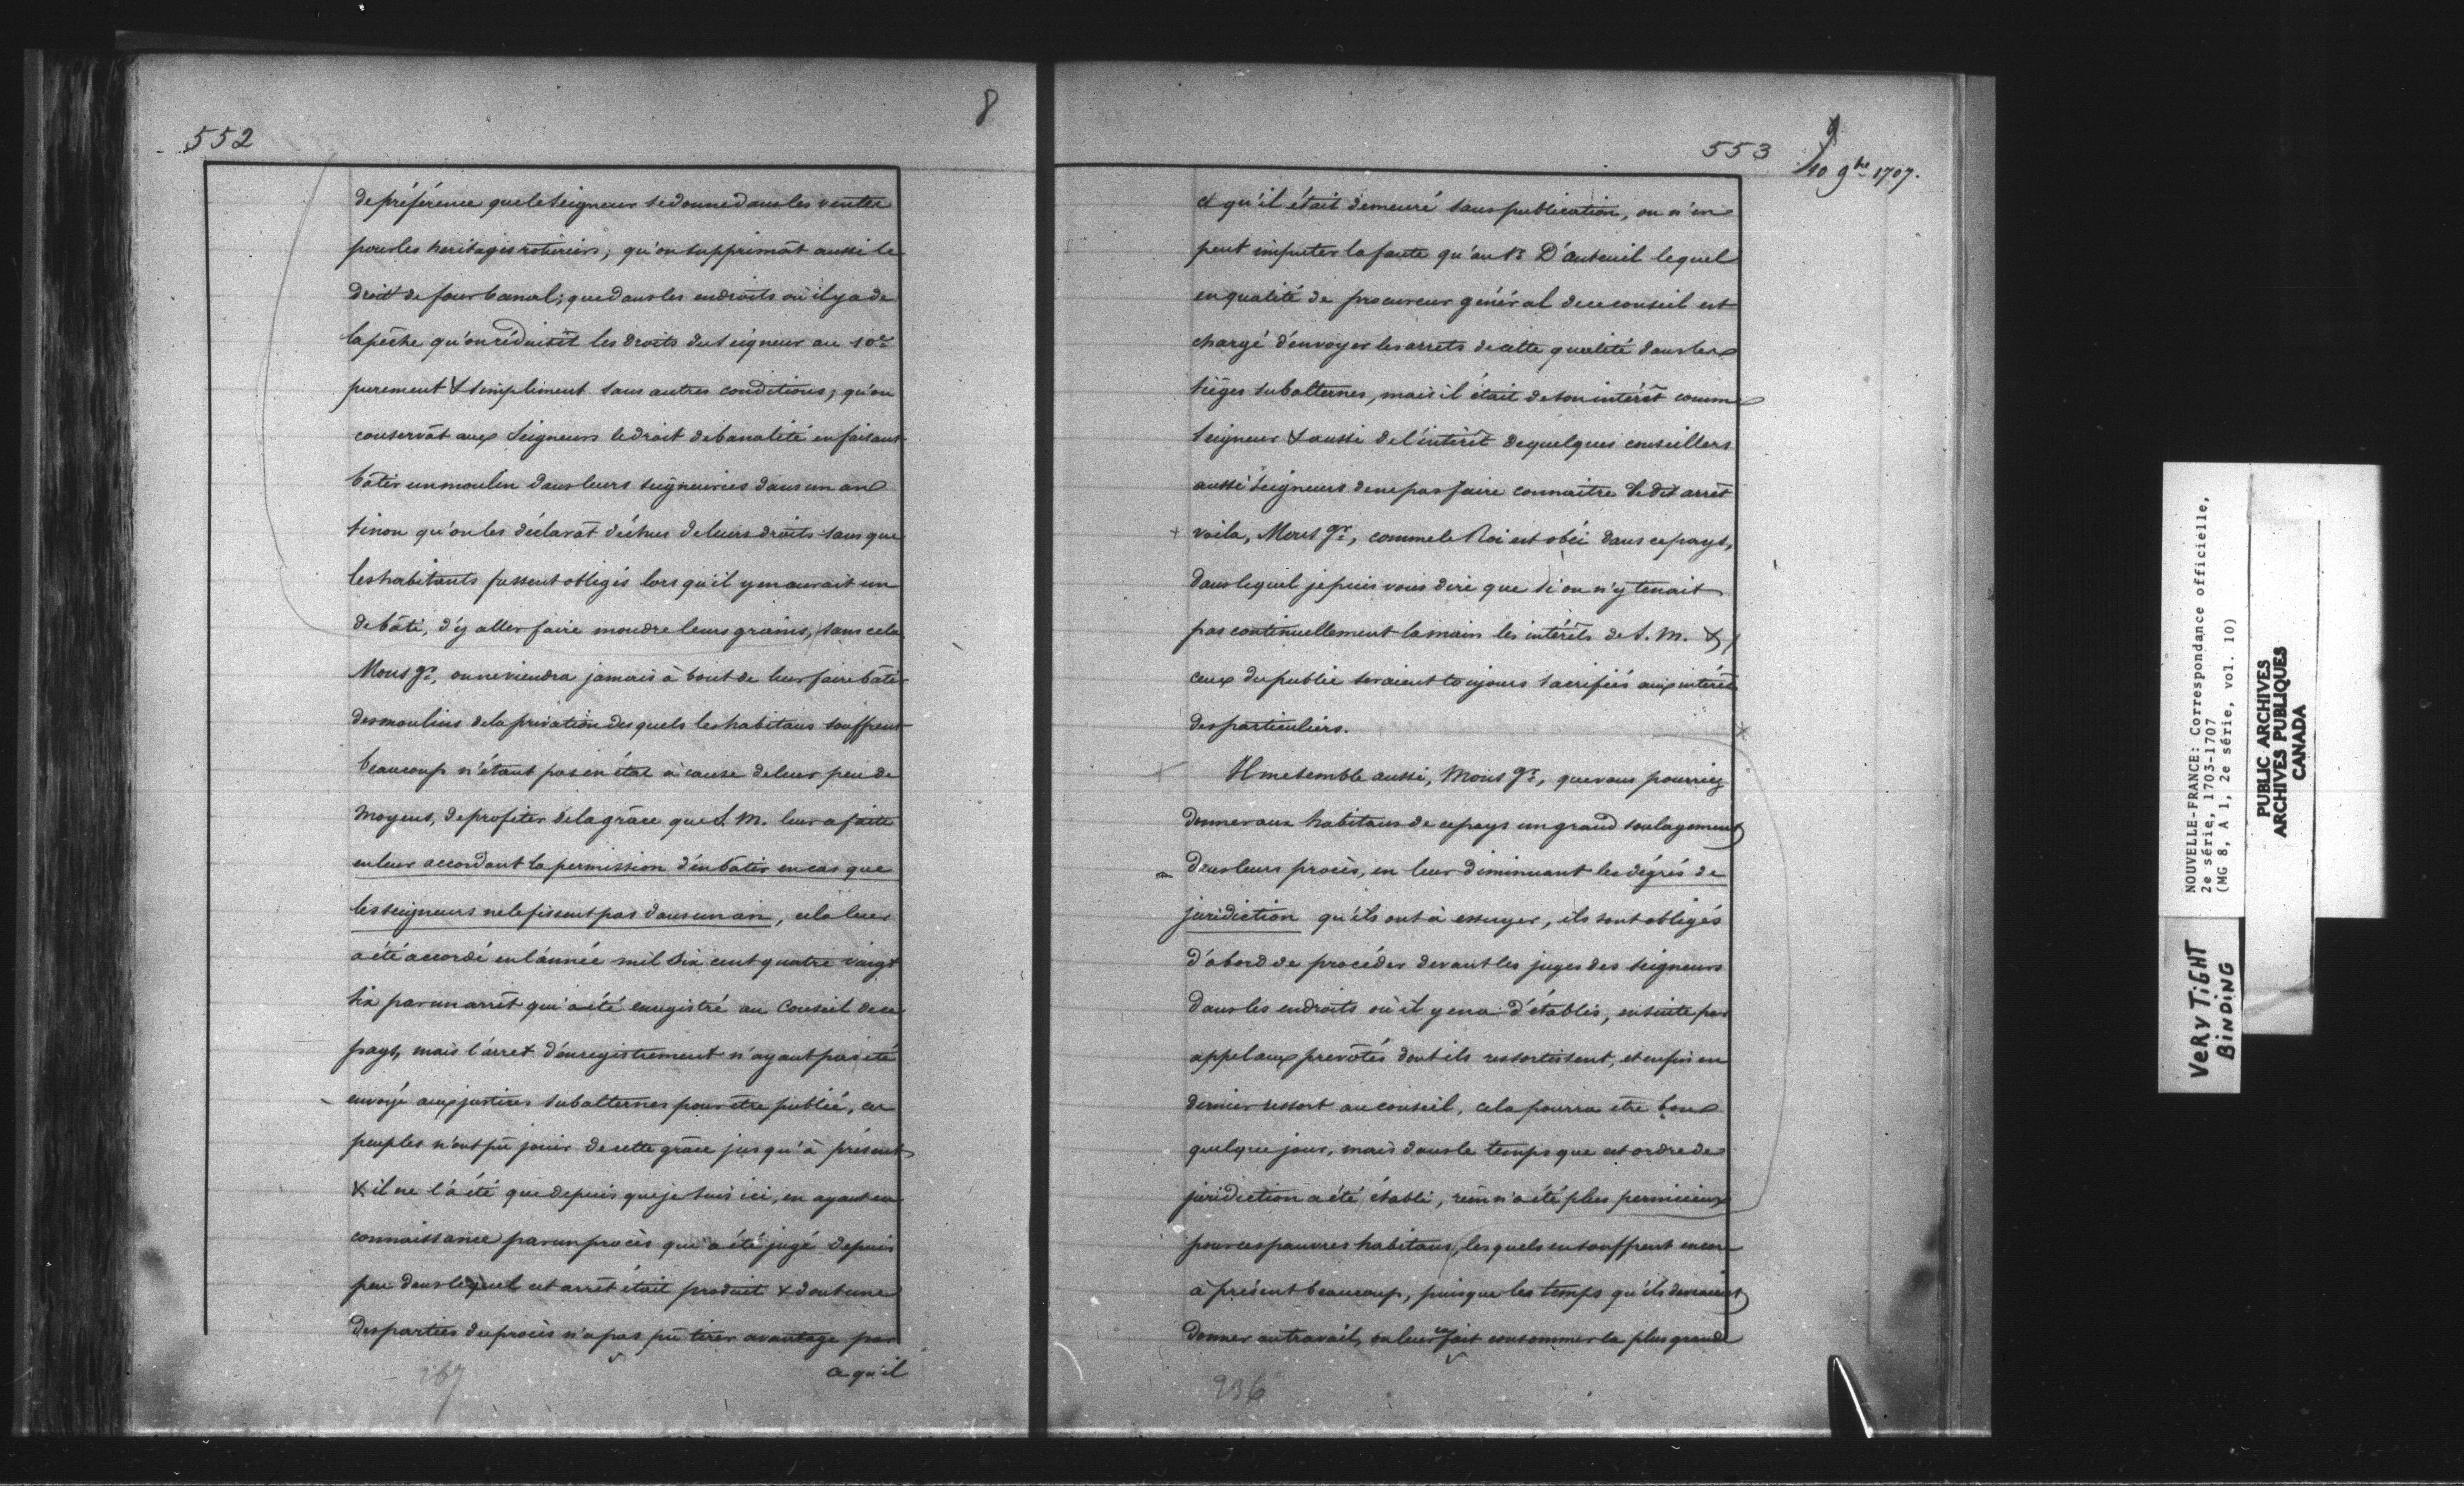 552
8
de préférence que le Seigneur se donne dans les ventes
pour les heritages roturiers; qu'on supprimât aussi le
droit de four banal; que dans les endroits où il y a de
la pêche qu'on réduisît les droits du Seigneur au 10e
purement & simplement sans autres conditions; qu'on
conservât aux Seigneurs le droit de banalité en faisant
bâtir un moulin dans leurs seigneuries dans un an
sinon qu'on les déclarât déchus de leurs droits sans que
les habitants fussent obligés lorsqu'il y en aurait un
de bâti, d'y aller faire moudre leurs grains, sans cela
Mons gr, on ne viendra jamais à bout de leur faire bâtir
des moulins de la privation des quels les habitans souffrent
beaucoup n'étant pas en état à cause de leur peu de
moyens, de profiter de la grâce que S. M. leur a faite
en leur accordant la permission d'en bâtir en cas que
les seigneurs ne le fissent pas dans un an, cela leur
a été accordé en l'année mil six cent quatre vingt
six par un arrêt qui a été enregistré au Conseil de ce
pays, mais l'arret d'enregistrement n'ayant pas été
envoyé aux justices subalternes pour être publié, ces
peuples n'ont pu jouir de cette grâce jusqu'à présent
& il ne l'a été que depuis que je suis ici, en ayant eu
connaissance par un procès qui a été jugé depuis
peu dans lequel cet arrêt était produit & dont une
des parties du procès n'a pas pu tirer avantage par
ce qu'il
267
553
9
10 9bre 1707.
et qu'il était demeuré sans publication, on n'en
peut imputer la faute qu'au Sr D'auteuil lequel
en qualité de procureur général de ce conseil est
chargé d'envoyer les arrets de cette qualité dans les
sièges subalternes, mais il était de son intérêt comme
Seigneur & aussi de l'intérêt de quelques conseillers
aussi Seigneurs de ne pas faire connaitre le dit arrêt
+ voila, Mons gr, comme le Roi est obéi dans ce pays,
dans lequel je puis vous dire que si on n'y tenait
pas continuellement la main les intérêts de S. M. &
ceux du public seraient toujours sacrifiés aux intérêts
des particuliers.
Il me semble aussi, Mons gr, que vous pourriez
donner aux habitans de ce pays un grand soulagement
dans leurs procès, en leur diminuant les dégrés de
juridiction qu'ils ont à essuyer, ils sont obligés
d'abord de procéder devant les juges des seigneurs
dans les endroits où il y en a d'établis, ensuite par
appel aux prevôtés dont ils ressortissent, et enfin en
dernier ressort au conseil, cela pourra etre bon
quelque jour, mais dans le temps que cet ordre de
juridiction a été établi, rien n'a été plus pernicieux
pour ces pauvres habitans, lesquels en souffrent encore
à présent beaucoup, puisque les temps qu'ils devraient
donner au travail, on leur en fait consommer la plus grande
236
NOUVELLE-FRANCE: Correspondance officielle,
2e série, 1703-1707
(MG 8, A 1, 2e série, vol. 10)
PUBLIC ARCHIVES
ARCHIVES PUBLIQUES
CANADA
VERY TIGHT
BINDING